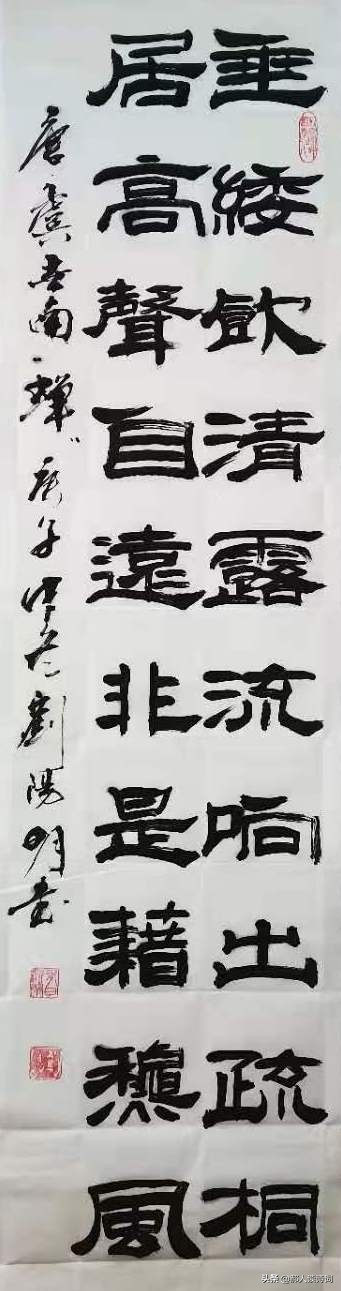 垂緌飲清露流响出疏桐
居高聲自遠非是藉龝風
唐虞世南蟬庚子劉陽明書
头条